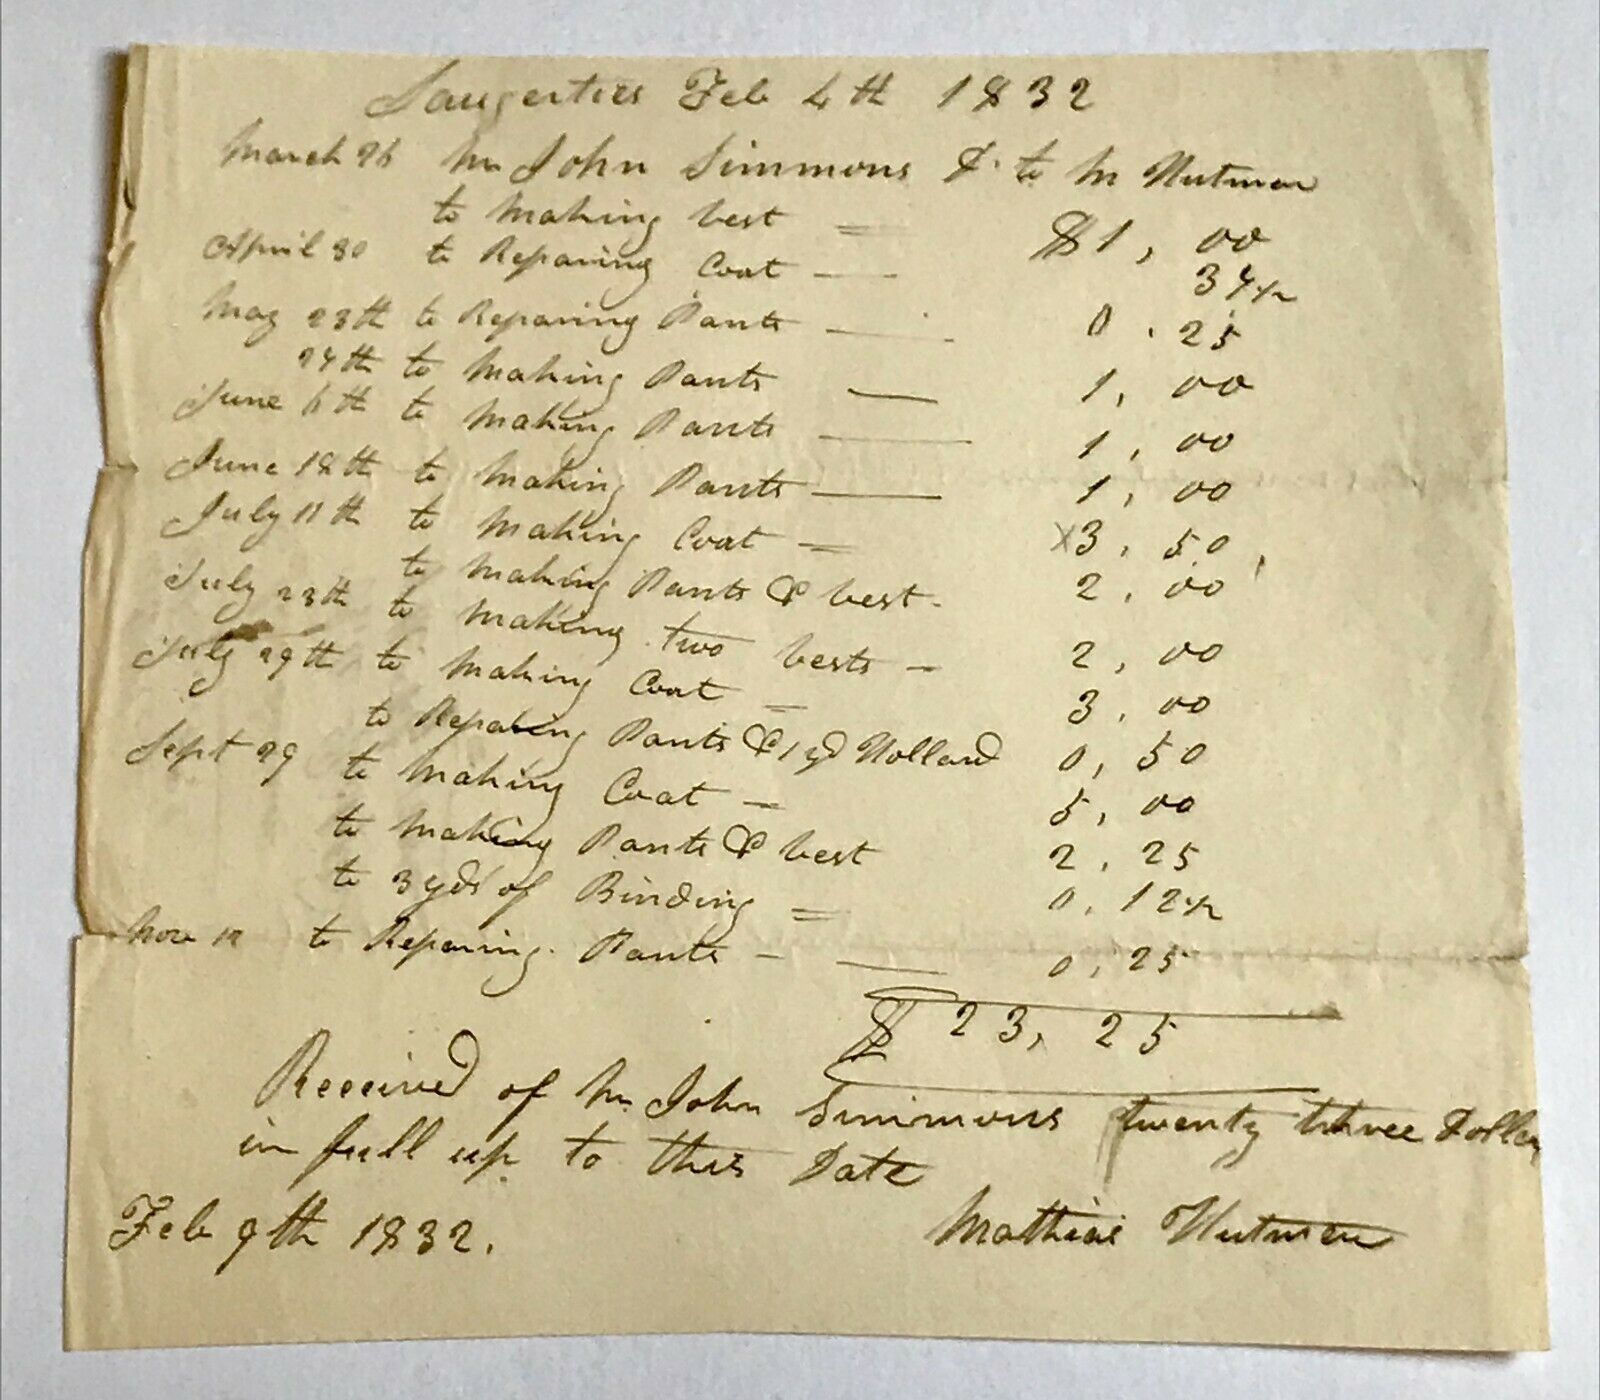 Saugerties Feb 4th 1832
March 26 Mr John Simmons Dr to M Hutmen
to Making vest = $1,00
April 30 to Reparing Coat — 37½
May 23th to Reparing Pants — 0.25
24th to Making Pants — 1,00
June 6th to Making Pants — 1,00
June 18th to Making Pants — 1,00
July 11th to Making Coat = x3,50
to Making Pants & vest - 2,00
July 23th to Making two vests - 2,00
July 29th to Making Coat = 3,00
to Reparing Pants & 1 yd Holland 0,50
Sept 29 to Making Coat - 5,00
to Making Pants & vest 2,25
to 3 yds of Binding = 0,12½
Nov to Reparing Pants - — 0,25
$ 23,25
Received of Mr John Simmons twenty three Dollars
in full up to this Date
Feb 9th 1832. Mathias Hutmen